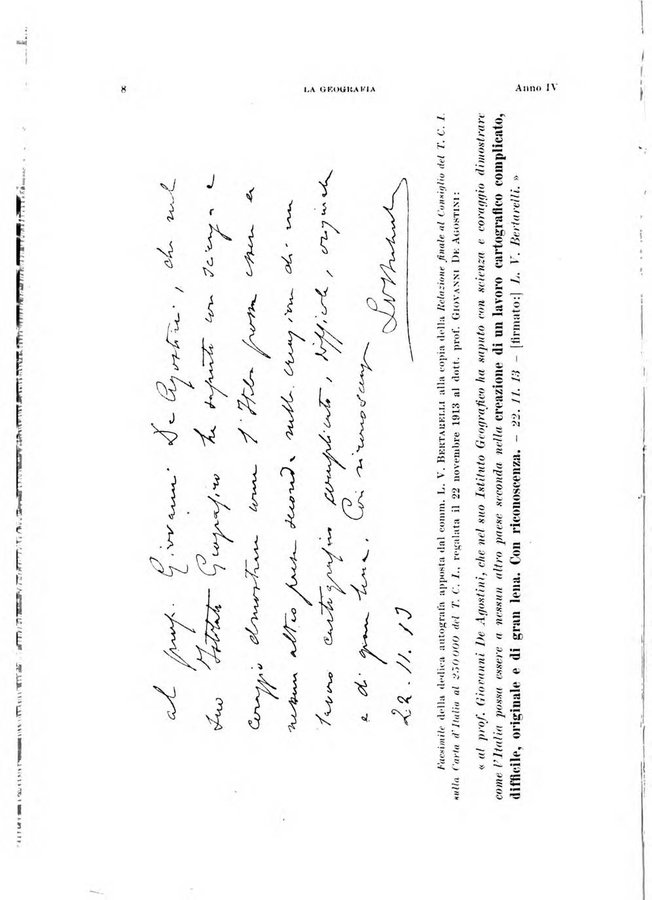 8 LA GEOGRAFIA Anno IV
al prof. Giovanni De Agostini, che nel
suo Istituto Geografico ha saputo con scienza e
coraggio dimostrare come l'Italia possa essere a
nessun altro paese seconda nella creazione di un
lavoro cartografico complicato, difficile, originale
e di gran lena. Con riconoscenza
22.11.13 LVBertarelli
Facsimile della dedica autografa apposta dal comm. L. V. BERTARELLI alla copia della Relazione finale al Consiglio del T. C. I.
sulla Carta d'Italia al 250000 del T. C. I., regalata il 22 novembre 1913 al dott. prof. GIOVANNI DE AGOSTINI:
« al prof. Giovanni De Agostini, che nel suo Istituto Geografico ha saputo con scienza e coraggio dimostrare
come l'Italia possa essere a nessun altro paese seconda nella creazione di un lavoro cartografico complicato,
difficile, originale e di gran lena. Con riconoscenza. – 22. 11. 13 – [firmato:] L. V. Bertarelli. »